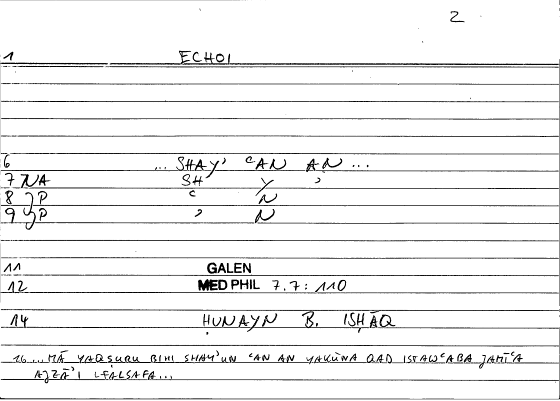 2
1 ECHOI
6 ... SHAYʾ ʿAN AN ...
7 NA SH Y ʾ
8 JP ʿ N
9 JP ʾ N
11 GALEN
12 MED PHIL 7.7: 110
14 ḤUNAYN B. ISḤĀQ
16 ... MĀ YAQṢURU BIHI SHAYʾUN ʿAN AN YAKŪNA QAD ISTAWʿABA JAMĪʿA
AJZĀʾI LFALSAFA ...